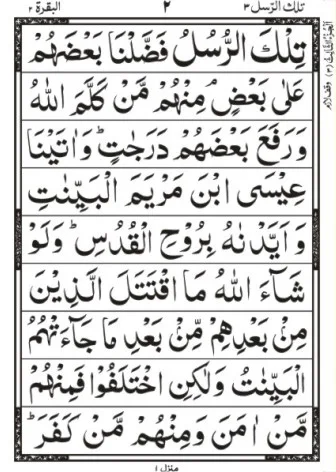 تلك الرسل ٣ ٢ البقرة ٢
تِلْكَ الرُّسُلُ فَضَّلْنَا بَعْضَهُمْ
عَلٰى بَعْضٍ مِنْهُمْ مَّنْ كَلَّمَ اللّٰهُ
وَرَفَعَ بَعْضَهُمْ دَرَجٰتٍ ؕ وَاٰتَيْنَا
عِيْسَى ابْنَ مَرْيَمَ الْبَيِّنٰتِ
وَاَيَّدْنٰهُ بِرُوْحِ الْقُدُسِ ؕ وَلَوْ
شَآءَ اللّٰهُ مَا اقْتَتَلَ الَّذِيْنَ
مِنْۢ بَعْدِهِمْ مِّنْۢ بَعْدِ مَا جَآءَتْهُمُ
الْبَيِّنٰتُ وَلٰكِنِ اخْتَلَفُوْا فَمِنْهُمْ
مَّنْ اٰمَنَ وَمِنْهُمْ مَّنْ كَفَرَ ؕ
منزل ١